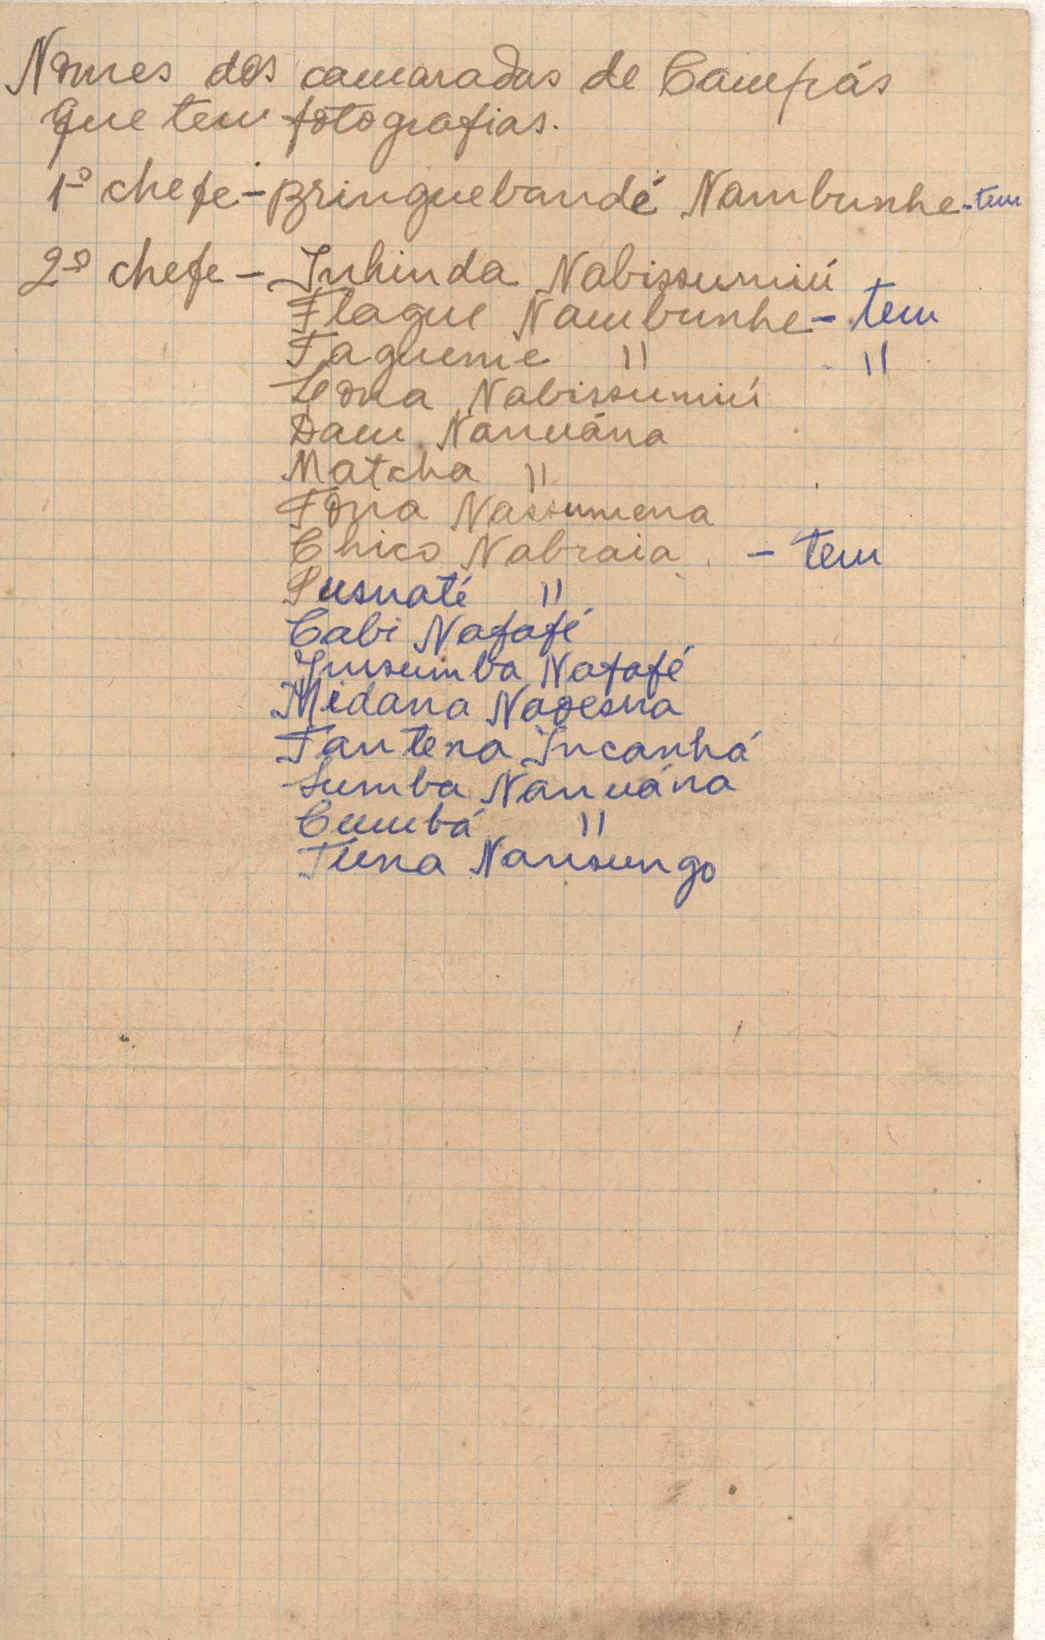 Nomes dos camaradas de Campiás
que tem fotografias.
1º chefe - Bringuebandé Nambunhe - tem
2º chefe - Inhinda Nabissumiú
Flague Nambunhe - tem
Tagueme " "
Lona Nabissumiú
Dam Nanuána
Matcha "
Fona Nassumena
Chico Nabraia - tem
Pusnaté "
Cabi Nafafé
Insumba Nafafé
Midana
Tantena Incanhá
Sumba Nanuána
Cumbá "
Tuna Nansungo